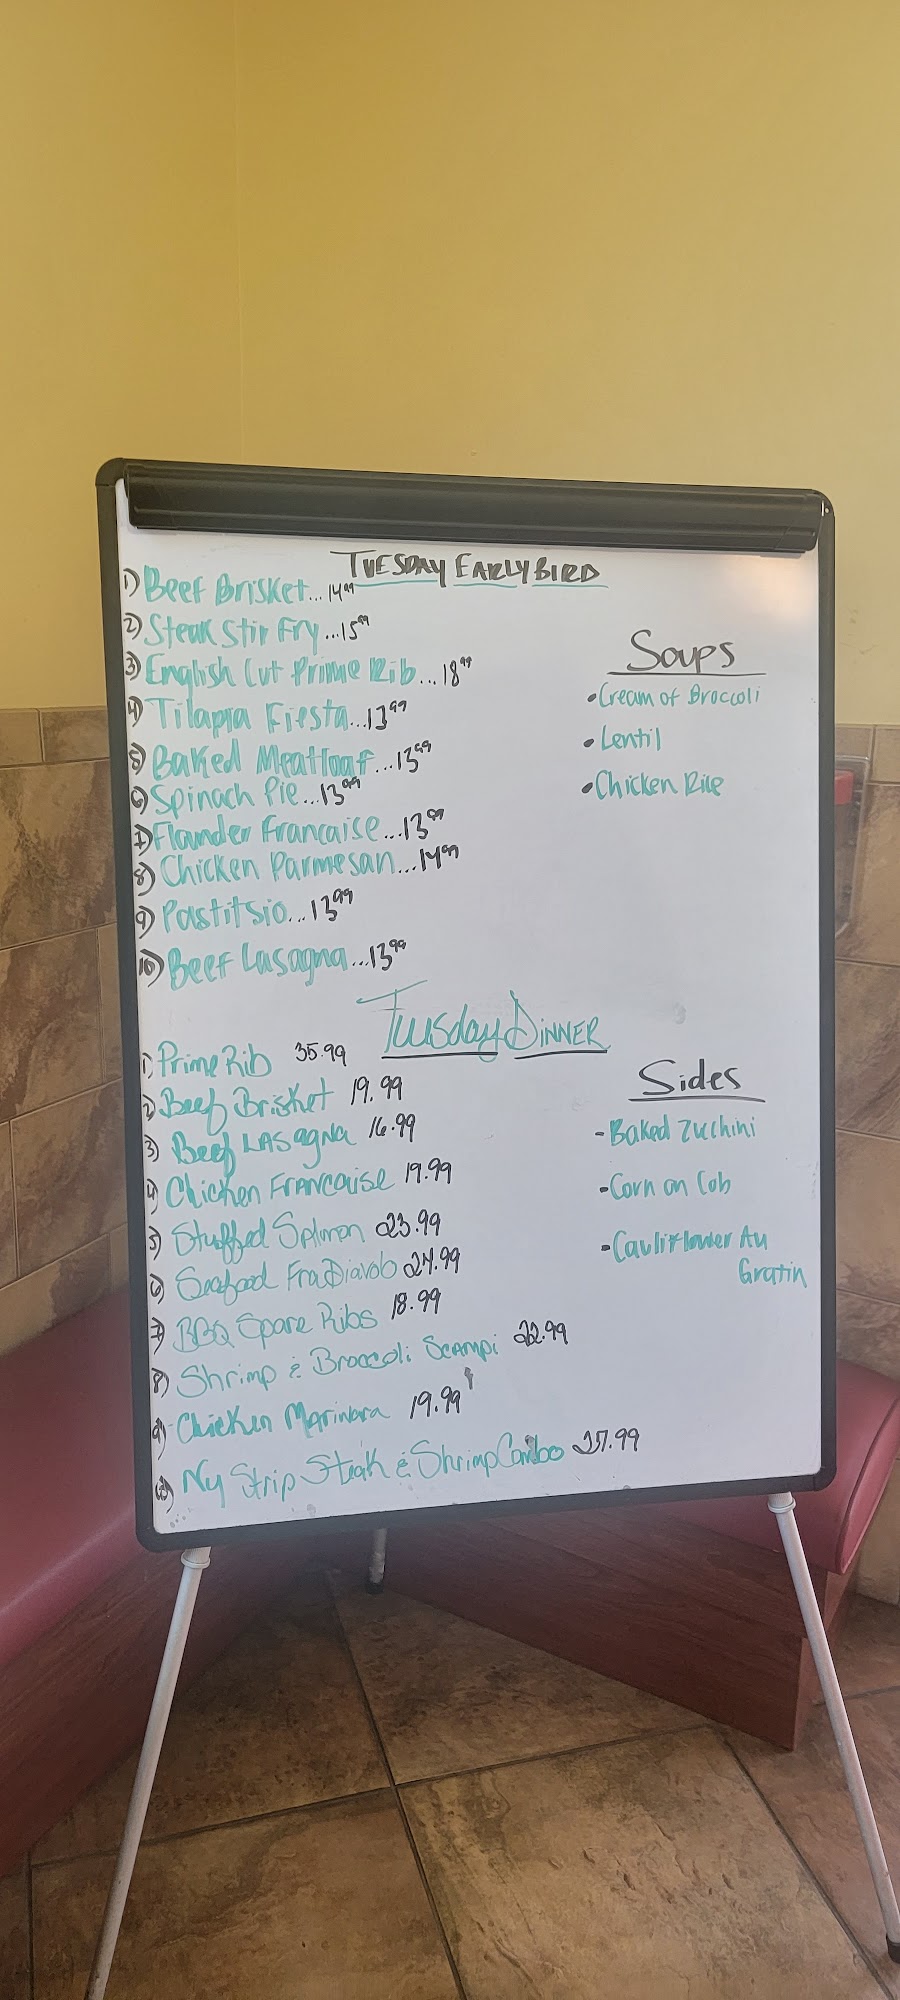 TUESDAY EARLY BIRD
1) Beef Brisket...14.99
2) Steak Stir Fry...15.99
3) English Cut Prime Rib...18.99
4) Tilapia Fiesta...13.99
5) Baked Meatloaf...13.99
6) Spinach Pie...13.99
7) Flounder Francaise...13.99
8) Chicken Parmesan...14.99
9) Pastitsio...13.99
10) Beef Lasagna...13.99
Soups
• Cream of Broccoli
• Lentil
• Chicken Rice
Tuesday DINNER
1) Prime Rib 35.99
2) Beef Brisket 19.99
3) Beef LASagna 16.99
4) Chicken Francaise 19.99
5) Stuffed Salmon 23.99
6) Seafood Fra Diavolo 24.99
7) BBQ Spare Ribs 18.99
8) Shrimp & Broccoli Scampi 22.99
9) Chicken Marinara 19.99
10) Ny Strip Steak & Shrimp Combo 27.99
Sides
- Baked Zucchini
- Corn on Cob
- Cauliflower Au
Gratin